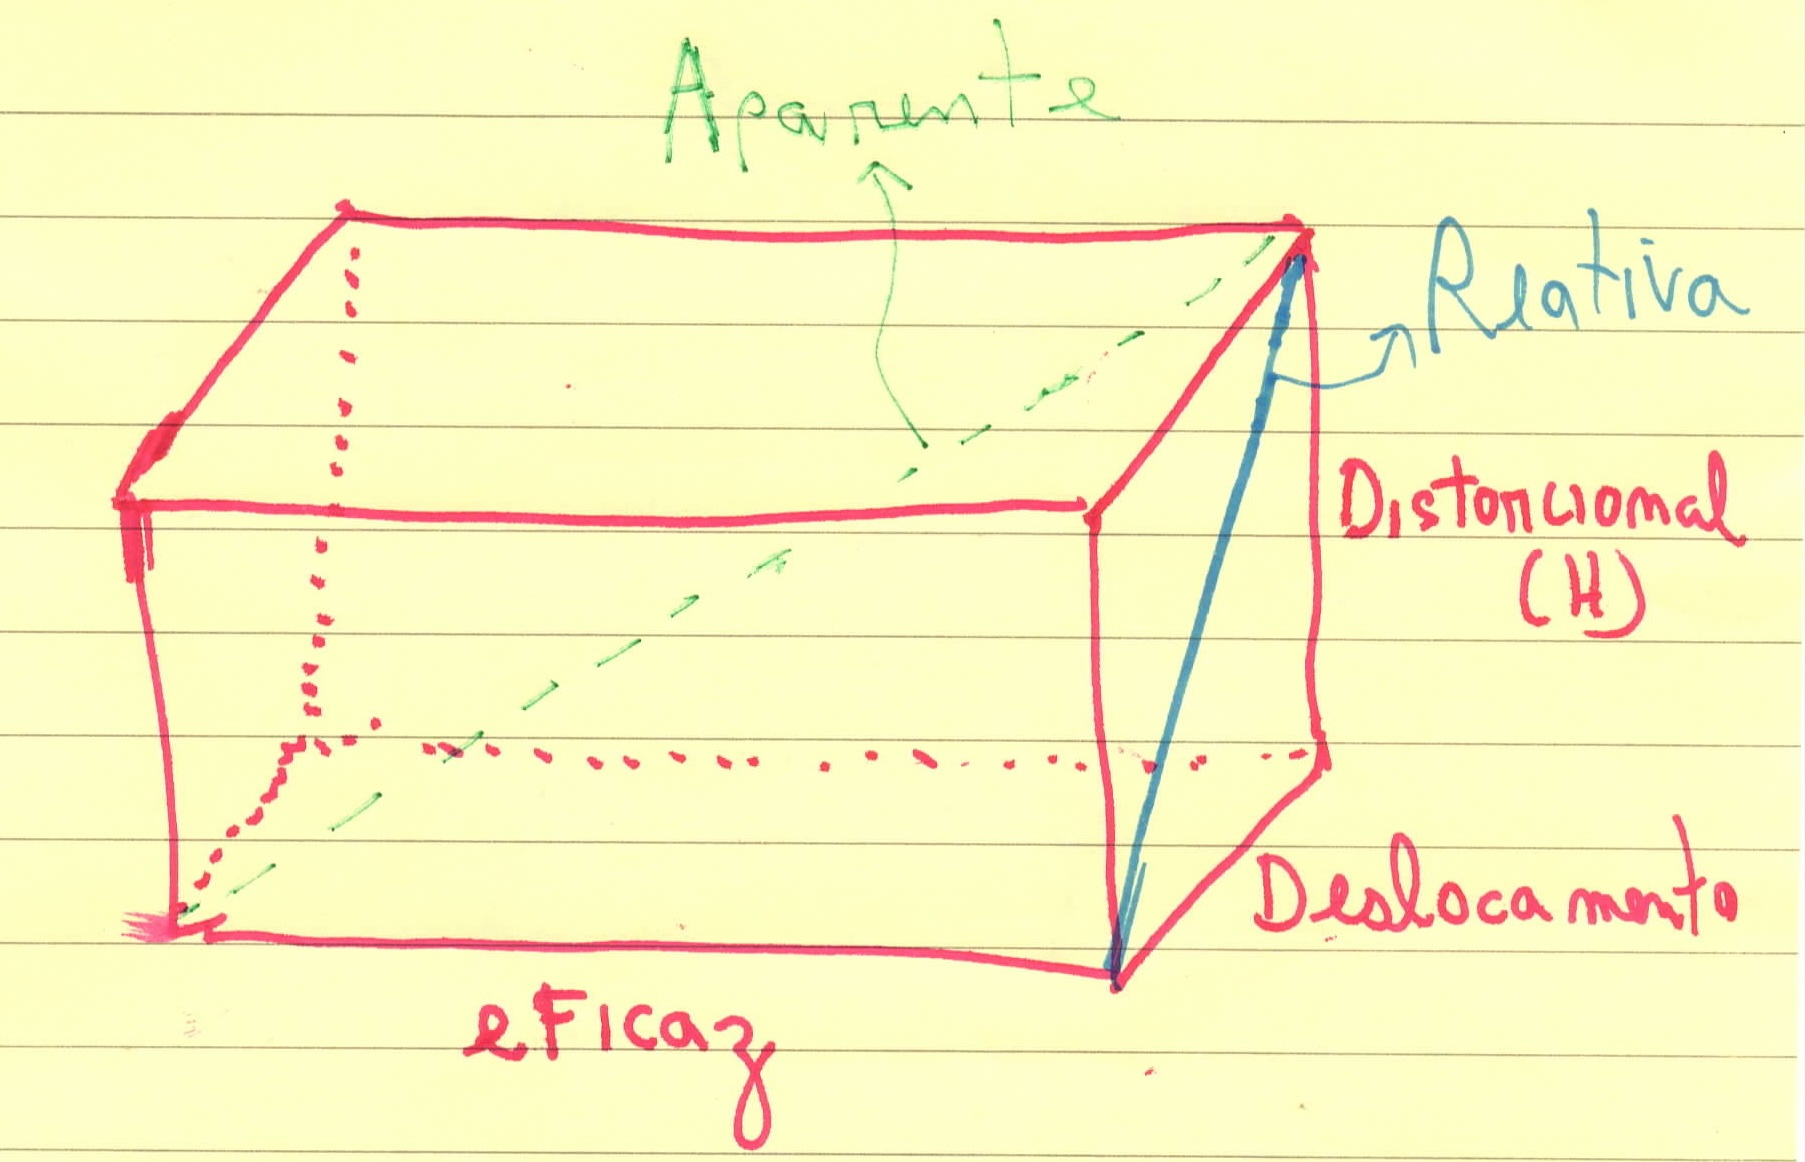 Aparente
Reativa
Distorcional
(H)
Deslocamento
eFicaz